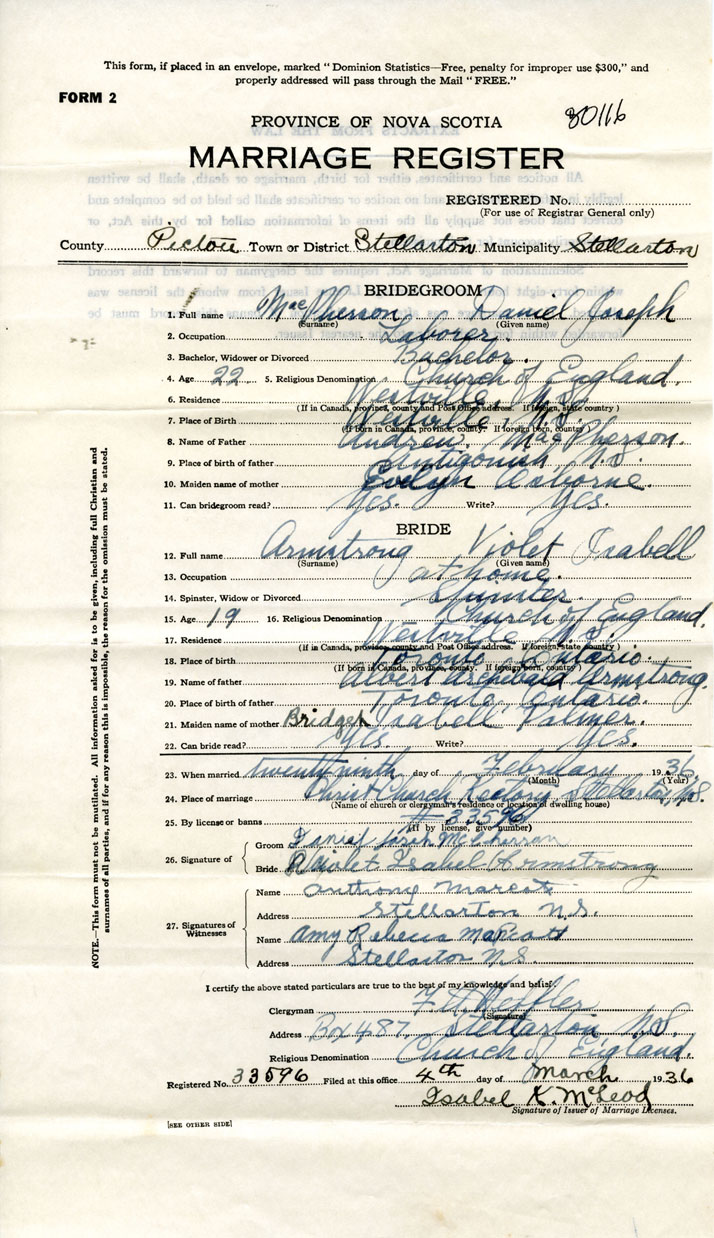 This form, if placed in an envelope, marked "Dominion Statistics—Free, penalty for improper use $300," and
properly addressed will pass through the Mail "FREE."
FORM 2
80116
PROVINCE OF NOVA SCOTIA
MARRIAGE REGISTER
REGISTERED No.
(For use of Registrar General only)
County Pictou Town or District Stellarton Municipality Stellarton
BRIDEGROOM
1. Full name MacPherson Daniel Joseph
(Surname) (Given name)
2. Occupation Laborer.
3. Bachelor, Widower or Divorced Bachelor.
4. Age 22 5. Religious Denomination Church of England.
6. Residence Westville, N.S.
(If in Canada, province, county and Post Office address. If foreign, state country)
7. Place of Birth Westville, N.S.
(If born in Canada, province, county. If foreign born, country)
8. Name of Father Andrew MacPherson.
9. Place of birth of father Antigonish, N.S.
10. Maiden name of mother Evelyn Osborne.
11. Can bridegroom read? Yes. Write? Yes.
BRIDE
12. Full name Armstrong Violet Isabell
(Surname) (Given name)
13. Occupation at home.
14. Spinster, Widow or Divorced Spinster.
15. Age 19 16. Religious Denomination Church of England.
17. Residence Westville N.S.
(If in Canada, province, county and Post Office address. If foreign, state country)
18. Place of birth Toronto, Ontario.
(If born in Canada, province, county. If foreign born, country)
19. Name of father Albert Archibald Armstrong.
20. Place of birth of father Toronto, Ontario.
21. Maiden name of mother Bridget Isabell Palmer.
22. Can bride read? Yes. Write? Yes.
23. When married twenty ninth day of February 1936
(Month) (Year)
24. Place of marriage Christ Church Rectory Stellarton, N.S.
(Name of church or clergyman's residence or location of dwelling house)
25. By license or banns # 33596
(If by license, give number)
26. Signature of
Groom Daniel Joseph McPherson
Bride Violet Isabel Armstrong
27. Signatures of Witnesses
Name Anthony
Address Stellarton N.S.
Name Amy Rebecca
Address Stellarton N.S.
I certify the above stated particulars are true to the best of my knowledge and belief.
Clergyman
(Signature)
Address Box 487, Stellarton, N.S.
Religious Denomination Church of England.
Registered No. 33596 Filed at this office 4th day of March 1936
Isabel K. McLeod
Signature of Issuer of Marriage Licenses.
[SEE OTHER SIDE]
NOTE.—This form must not be mutilated. All information asked for is to be given, including full Christian and
surnames of all parties, and if for any reason this is impossible, the reason for the omission must be stated.